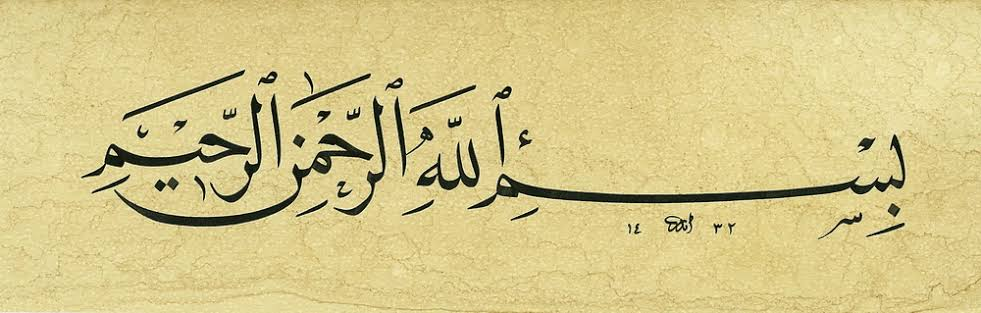 بِسْمِ ٱللَّهِ ٱلرَّحْمٰنِ ٱلرَّحِيمِ
١٤ ٣٢